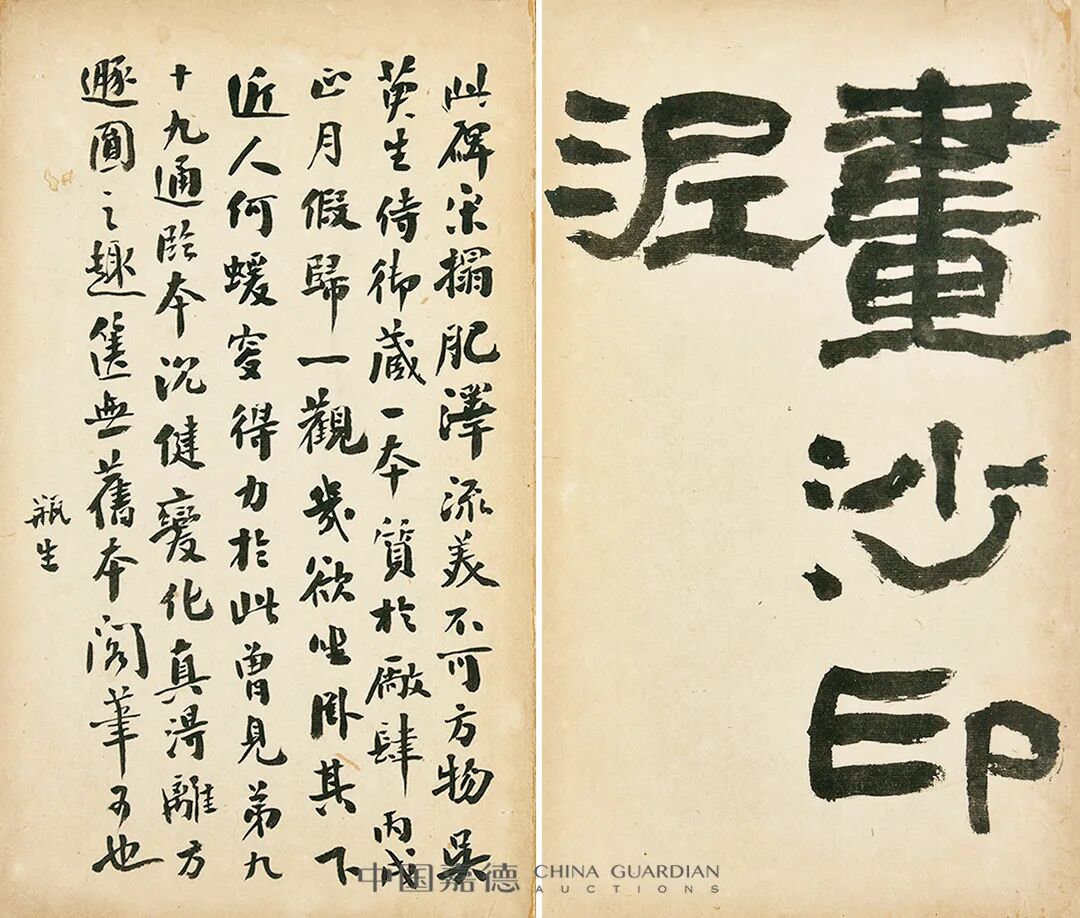 畫沙印
泥
此碑宋搨肥澤流美不可方物吳
荑生侍御藏一本質於厰肆丙戌
正月假歸一觀幾欲坐臥其下
近人何蝯叟得力於此曾見弟九
十九通臨本沉健變化真得離方
遯圓之趣篋無舊本閣筆可也
瓶生
中国嘉德 CHINA GUARDIAN
AUCTIONS